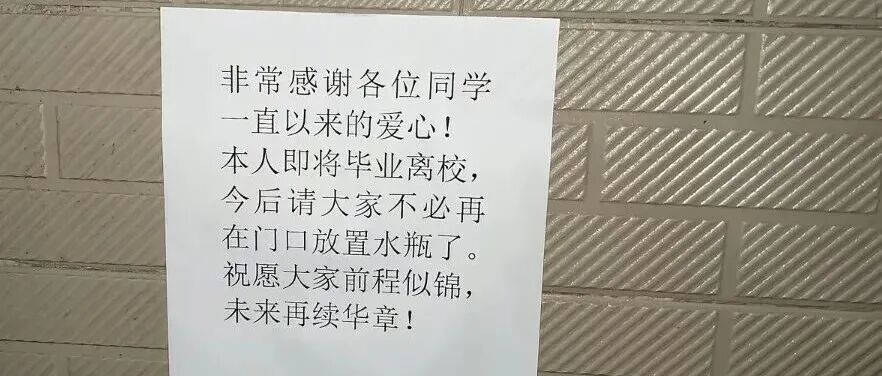 非常感谢各位同学
一直以来的爱心！
本人即将毕业离校，
今后请大家不必再
在门口放置水瓶了。
祝愿大家前程似锦，
未来再续华章！